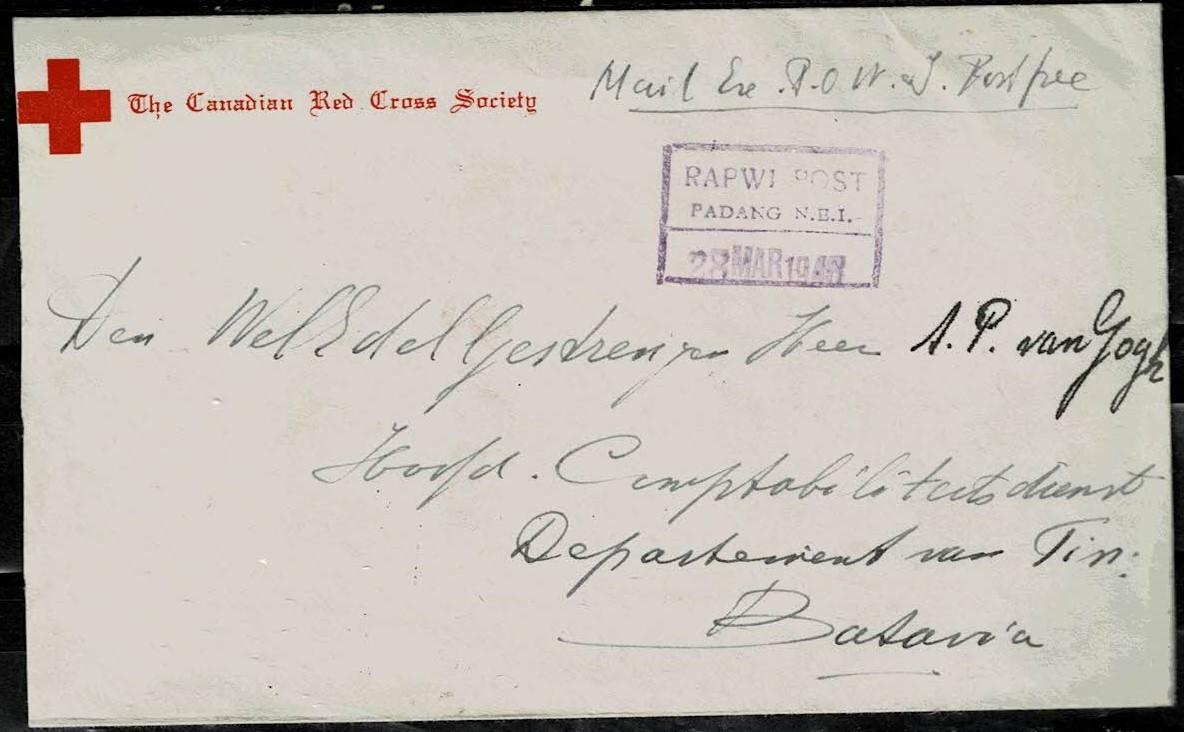 The Canadian Red Cross Society
Mail Ex P.O.W. & I. Post free
RAPWI POST
PADANG N.E.I.
28 MAR 1946
Den WelEdelGestrengen Heer A.P. van Gogh
Hoofd. Comptabiliteitsdienst
Departement van Fin:
Batavia